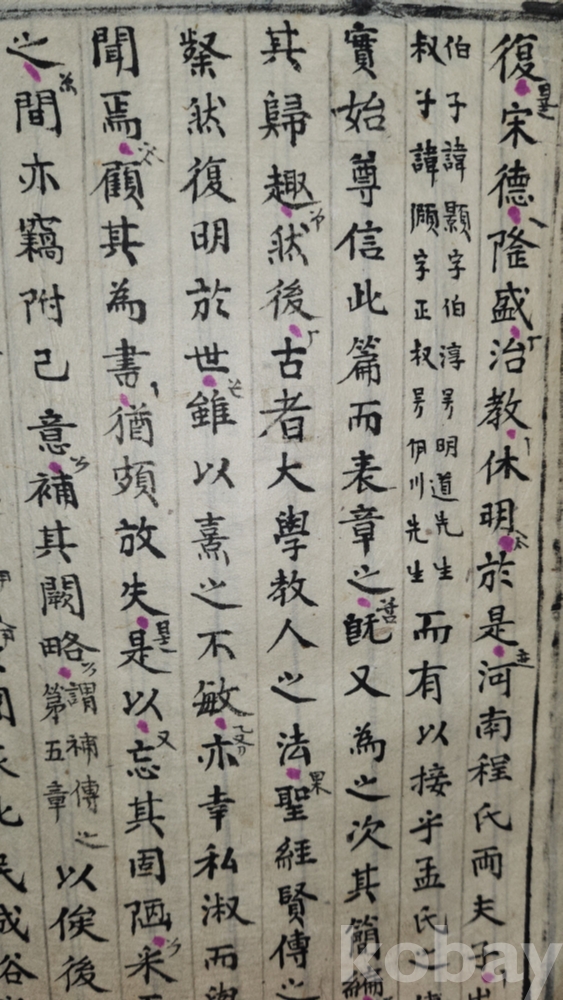 復宋德隆盛治教休明於是河南程氏兩夫子出
伯子諱顥字伯淳号明道先生
叔子諱頤字正叔号伊川先生
而有以接乎孟氏之傳
實始尊信此篇而表章之旣又為之次其簡編
其歸趣然後古者大學教人之法聖經賢傳之
粲然復明於世雖以熹之不敏亦幸私淑而與
聞焉顧其為書猶頗放失是以忘其固陋采而
之間亦竊附己意補其闕略
謂補傳之
第五章
以俟後
國家化民成俗
kobay